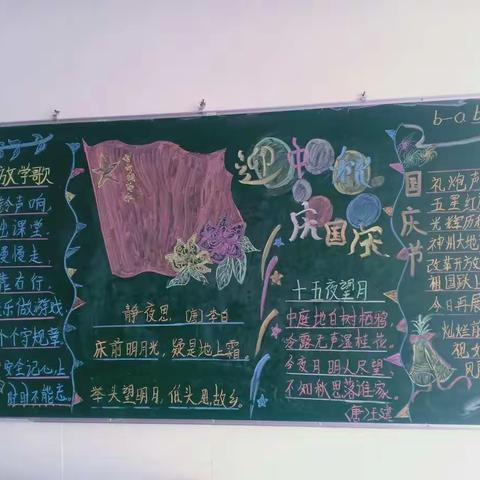 放学歌
铃声响,
出课堂.
慢慢走,
靠右行,
乐做游戏
个个守规章
安全记心上
时时不能忘.
迎中秋
庆国庆
静夜思 (唐)李白
床前明月光,疑是地上霜。
举头望明月,低头思故乡。
十五夜望月
中庭地白树栖鸦
冷露无声湿桂花.
今夜月明人尽望
不知秋思落谁家.
(唐)王建
b-a b
国庆节
礼炮声
五星红
光辉历程
神州大地
改革开放
祖国跃上
今日再展
灿烂前
祝